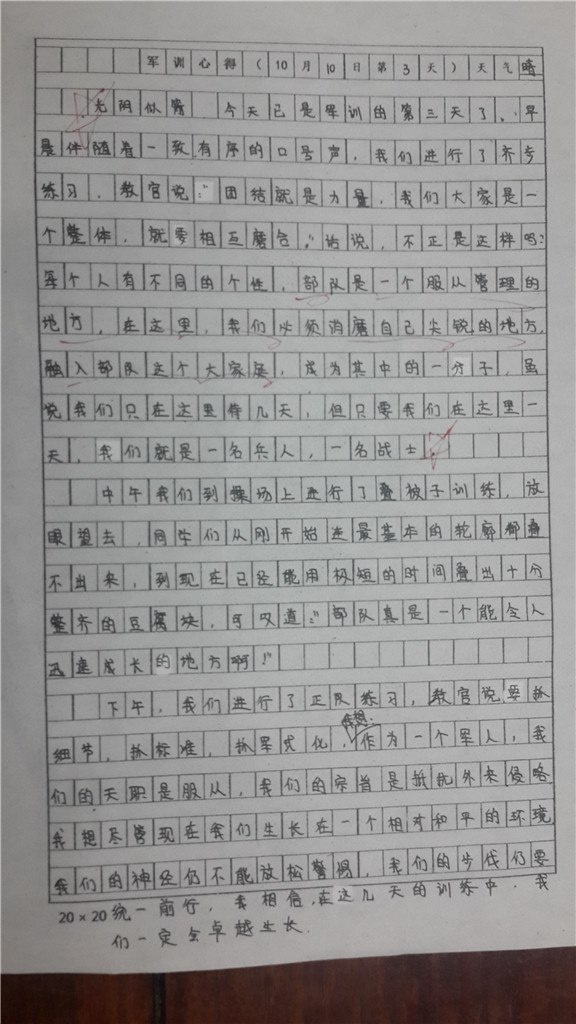 军训心得(10月10日第3天)天气晴
光阴似箭 今天已是军训的第三天了、早
晨伴随着一致有序的口号声,我们进行了齐步
练习,教官说:“团结就是力量,我们大家是一
个整体,就要相互磨合,”话说,不正是这样吗?
每个人有不同的个性,部队是一个服从管理的
地方,在这里,我们必须消磨自己尖锐的地方,
融入部队这个大家庭,成为其中的一分子,虽
说我们只在这里待几天,但只要我们在这里一
天,我们就是一名兵人,一名战士.
中午我们到操场上进行了叠被子训练,放
眼望去,同学们从刚开始连最基本的轮廓都叠
不出来,到现在已经能用极短的时间叠出十分
整齐的豆腐块,可叹道:“部队真是一个能令人
迅速成长的地方啊!”
下午,我们进行了正队练习,教官说要抓
细节,抓标准,抓军式化,我想:作为一个军人,我
们的天职是服从,我们的宗旨是抵抗外来侵略
我想尽管现在我们生长在一个相对和平的环境
我们的神经仍不能放松警惕,我们的步伐仍要
20×20统一前行,我相信,在这几天的训练中,我
们一定会卓越生长.